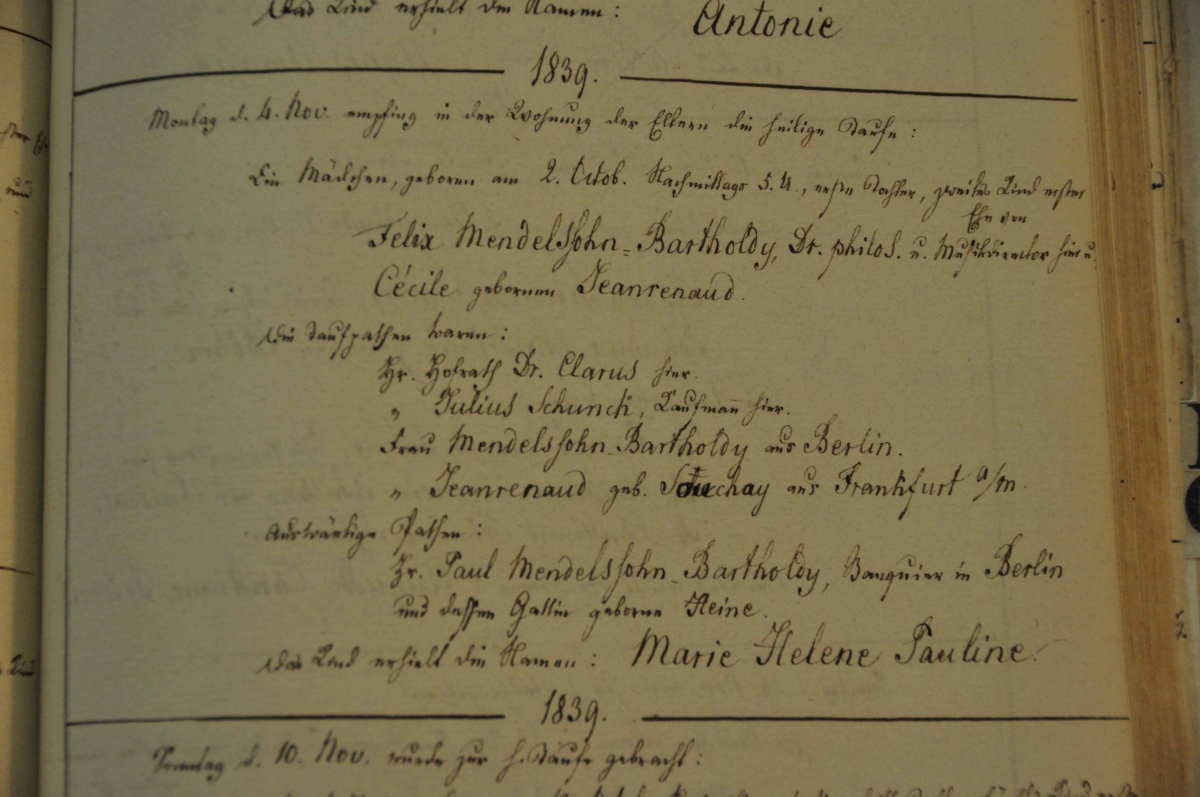 Das Kind erhielt die Namen: Antonie
1839.
Montag d. 4. Nov. empfing in der Wohnung der Eltern die heilige Taufe:
Ein Mädchen, geboren am 2. Octob. Nachmittags 5. U., erste Tochter, zweites Kind erster
Ehe von
Felix Mendelssohn-Bartholdy, Dr. philos. u. Musikdirector hier u.
Cécile gebornen Jeanrenaud.
Die Taufpathen waren:
Hr. Hofrath Dr. Clarus hier.
" Julius Schunck, Kaufmann hier.
Frau Mendelssohn-Bartholdy aus Berlin.
" Jeanrenaud geb. Souchay aus Frankfurt a/m.
Auswärtige Pathen:
Hr. Paul Mendelssohn-Bartholdy, Banquier in Berlin
und dessen Gattin geborne Heine.
Das Kind erhielt die Namen: Marie Helene Pauline.
1839.
Sonntag d. 10. Nov. wurde zur h. Taufe gebracht: